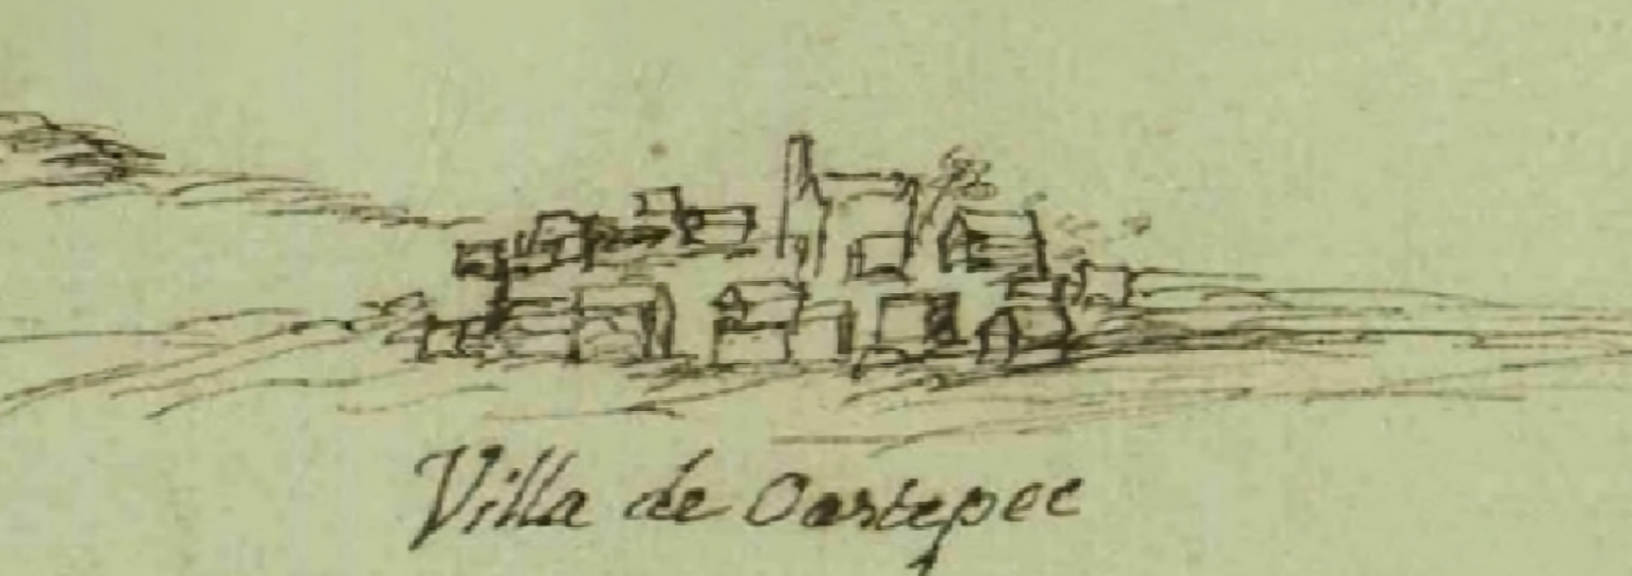 Villa de Oastepec